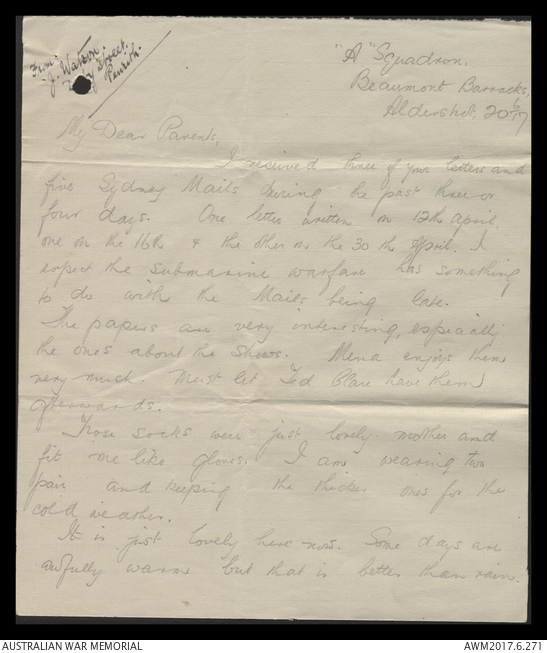 From:
J. Watson.
Street.
Penrith.
"A" Squadron,
Beaumont Barracks,
Aldershot, 20/6/17
My Dear Parents,
I received three of your letters and
five Sydney Mails during the past three or
four days. One letter written on 12th April.
one on the 16th & the other on the 30th April. I
expect the submarine warfare has something
to do with the Mails being late.
The papers are very interesting, especially
the ones about the Shows. Mena enjoys them
very much. Must let Ted Clare have them
afterwards.
Those socks were just lovely mother and
fit me like gloves. I am wearing two
pair and keeping the thicker ones for the
cold weather.
It is just lovely here now. Some days are
awfully warm but that is better than rain.
AUSTRALIAN WAR MEMORIAL
AWM2017.6.271